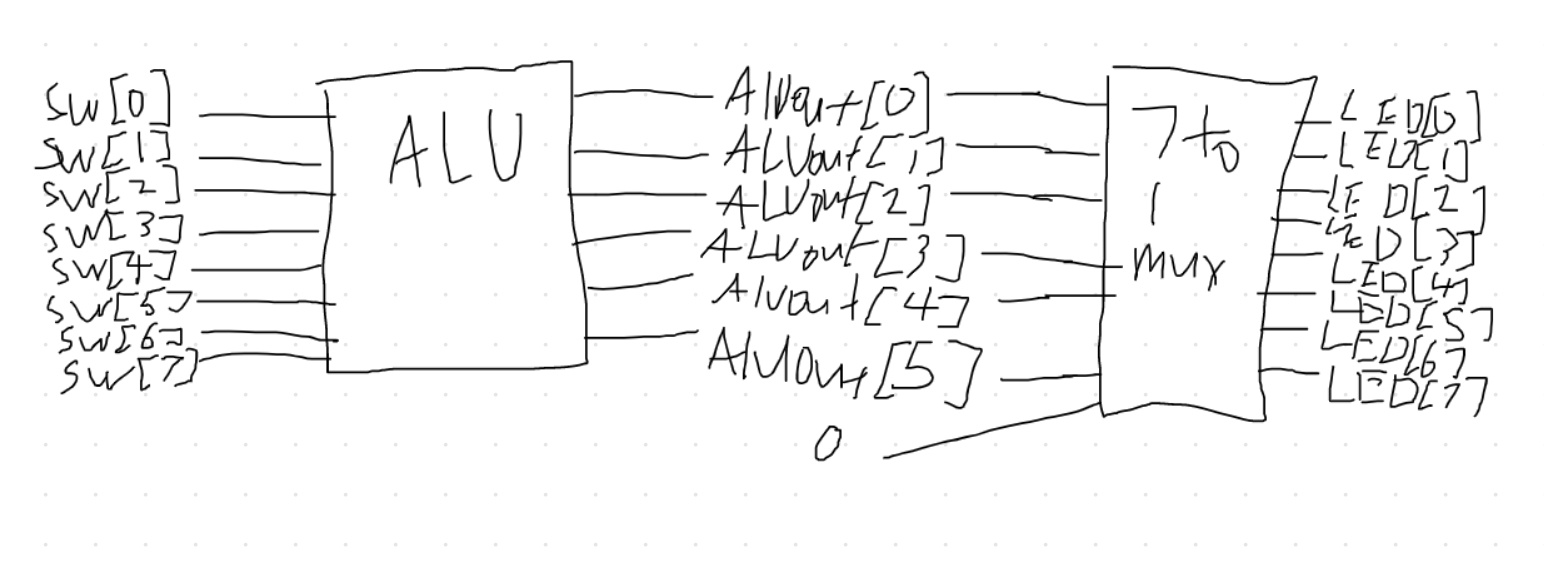 SW[0]
SW[1]
SW[2]
SW[3]
SW[4]
SW[5]
SW[6]
SW[7]
ALU
AlUout[0]
ALUout[1]
ALUout[2]
ALUout[3]
AlUout[4]
AlUOut[5]
0
7 to
1
mux
LED[0]
LED[1]
LED[2]
LED[3]
LED[4]
LED[5]
LED[6]
LED[7]